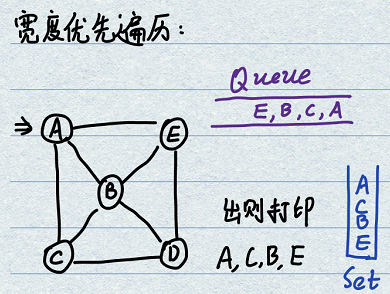 宽度优先遍历:
Queue
E, B, C, A
A
E
B
C
D
出则打印
A, C, B, E
A
C
B
E
Set